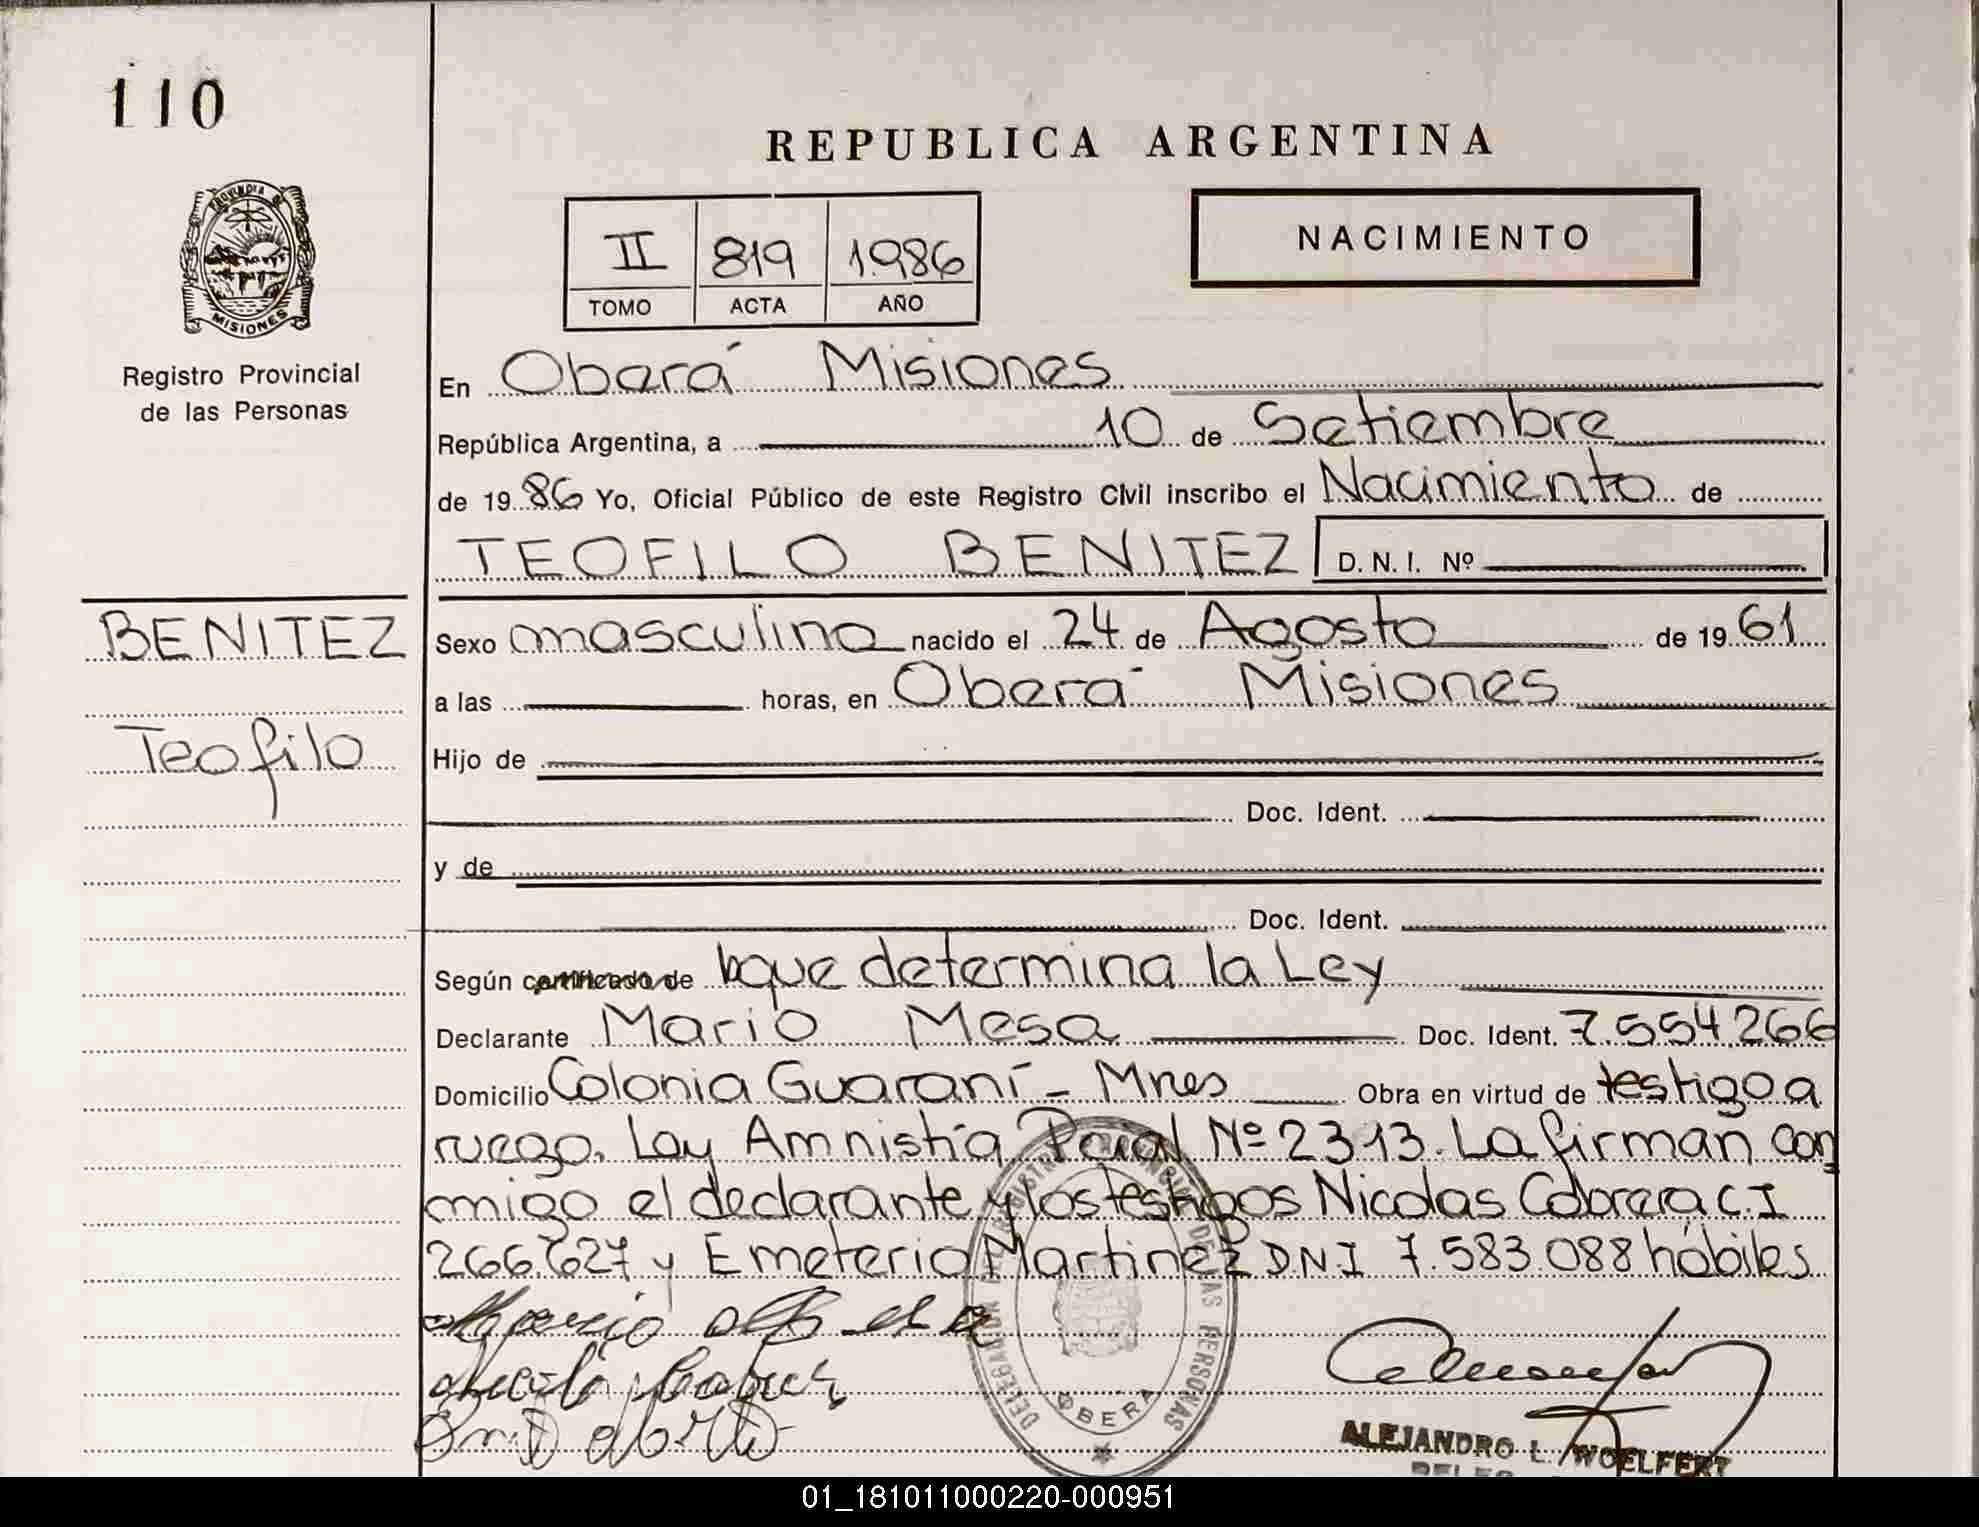 110
REPUBLICA ARGENTINA
II 819 1986
TOMO ACTA AÑO
NACIMIENTO
PROVINCIA DE
MISIONES
Registro Provincial
de las Personas
En Oberá Misiones
República Argentina, a 10 de Setiembre
de 1986 Yo, Oficial Público de este Registro Civil inscribo el Nacimiento de
TEOFILO BENITEZ D. N. I. Nº
BENITEZ
Teofilo
Sexo masculino nacido el 24 de Agosto de 1961
a las horas, en Oberá Misiones
Hijo de
Doc. Ident.
y de
Doc. Ident.
Según certificado de loque determina la Ley
Declarante Mario Mesa Doc. Ident. 7.554.266
Domicilio Colonia Guaraní - Mnes Obra en virtud de testigo a
ruego. Ley Amnistía Nº 2313. La firman con
migo el declarante y los testigos Nicolas Cabrera C.I
266.627 y Emeterio Martinez D.N.I 7.583.088 hábiles
DELEGACION REGISTRO PROVINCIAL DE LAS PERSONAS
OBERA
ALEJANDRO L. WOELFERT
01_181011000220-000951